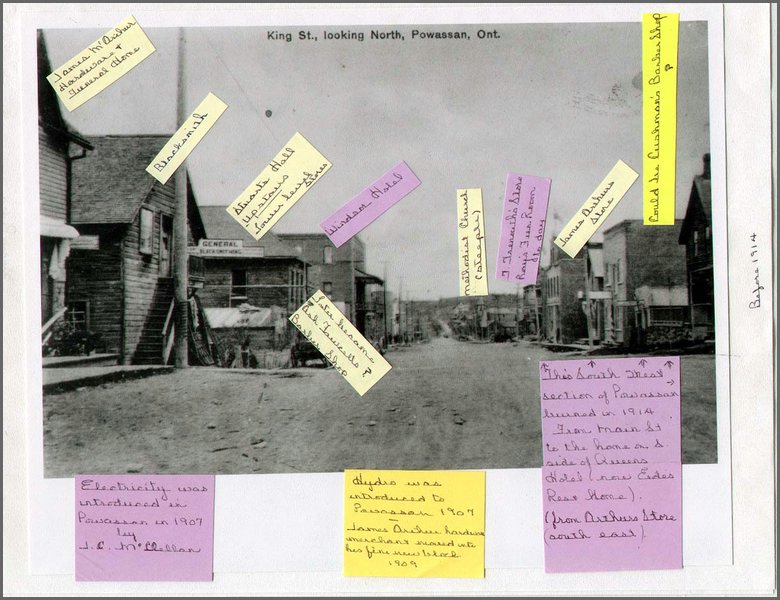 King St., looking North, Powassan, Ont.
James McArthur
Hardware &
Funeral Home
Blacksmith
Stuarts Hall
Upstairs
lower level
Stores
Windsor Hotel
Methodist Church
(steeple)
Trenouth's Store
Ray's Furr Room
to day
James Arthurs
Store
Could be Cushman's Barber Shop
?
GENERAL
BLACKSMITHING
Later became
Ash Fawcetts
Barber Shop ?
Before 1914
Electricity was
introduced in
Powassan in 1907
by
J. C. McClellan
Hydro was
introduced to
Powassan 1907
James Arthur hardware
merchant moved into
his fine new block
1909
This South West
section of Powassan
burned in 1914
From Main St
to the home on S.
side of Queens
Hotel (now Eides
Rest Home).
(from Arthurs Store
south east).